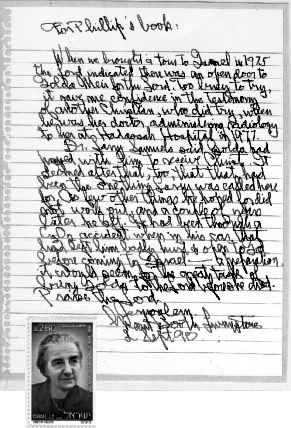 For Phillip's book:
When we brought a tour to Israel in 1975
the Lord indicated there was an open door to
Golda Meir for the Lord. Too busy to try,
it gave me confidence in the testimony
of another Christian, who did try, when
he was her doctor, administering radiology
to her at Hadassah Hospital in 197
Dr. Larry Samuels said Golda had
prayed with him to receive Christ. It
seemed after that, too that that had
been the one thing Larry was called here
for. A few other things he hoped for did
not work out, and a couple of years
later he left. He had been through a
accident when in his car that
had left him badly hurt &
before coming to Israel — a preparation
it would seem for the great task of
bringing Golda to the Lord before she died.
Praise the Lord.
Jerusalem
Sept 90
2.60
ישראל
ISRAEL